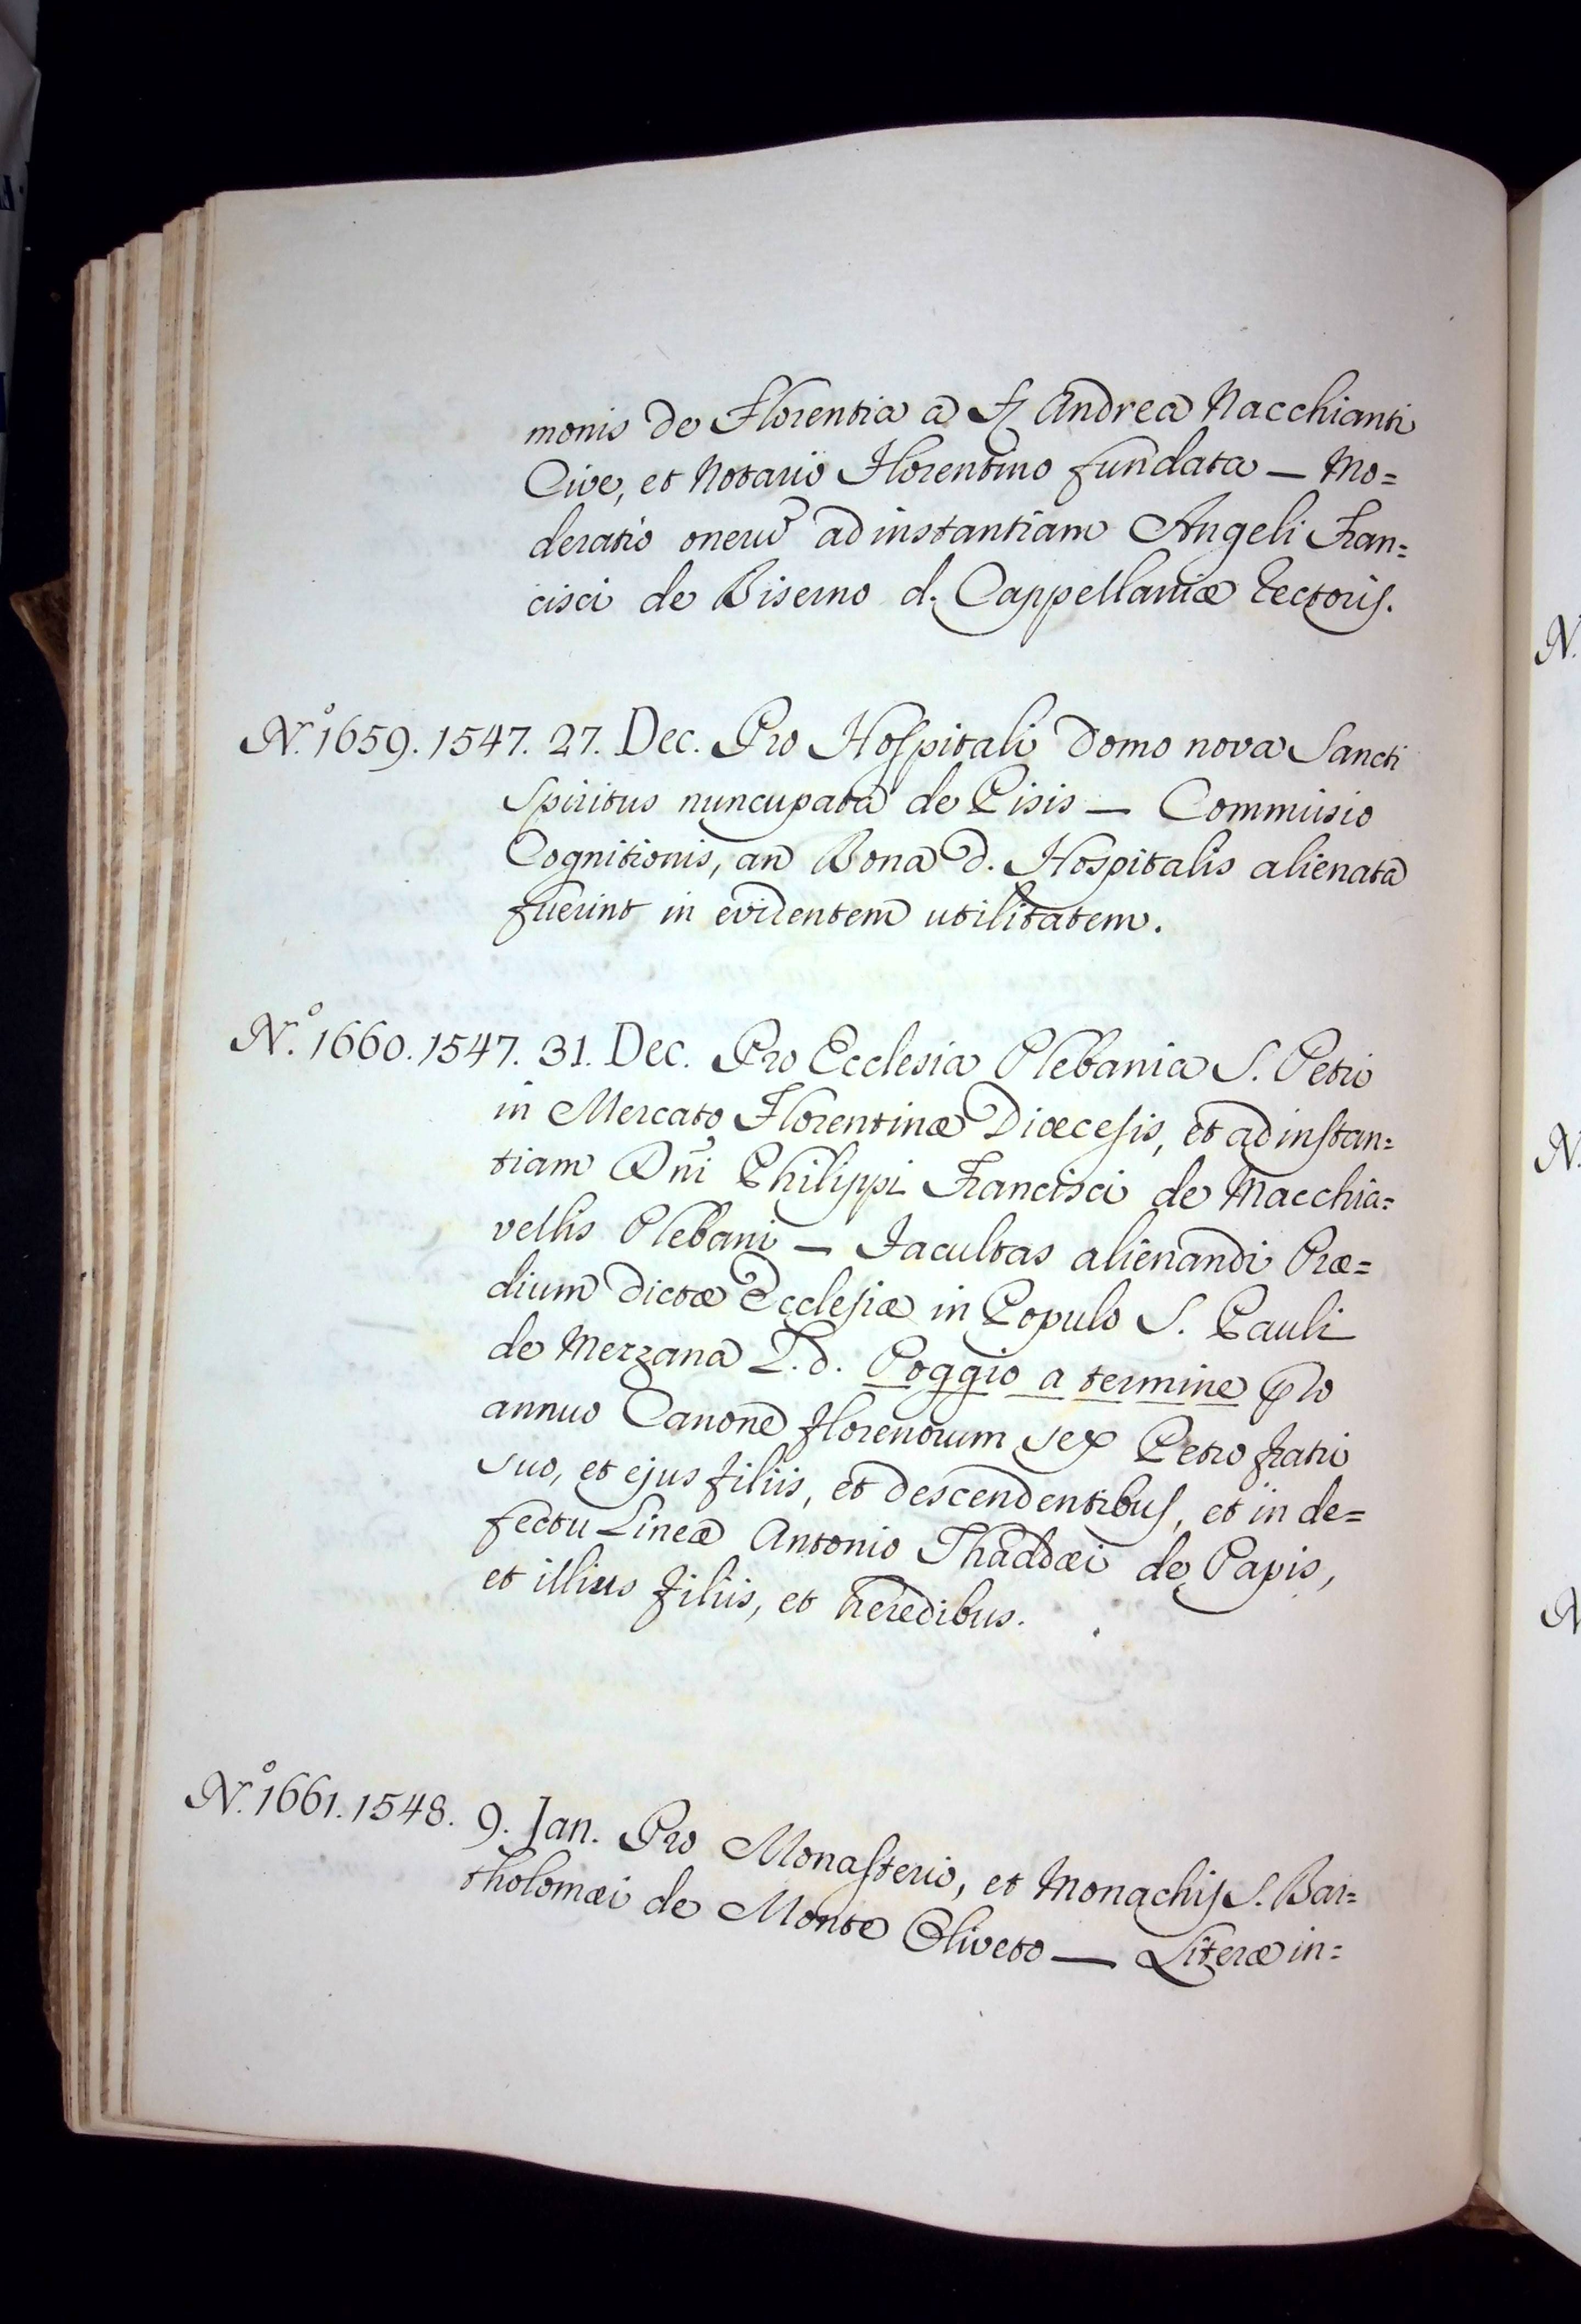 monis de Florentia a Sr Andrea Nacchianti
Cive, et Notario Florentino fundata — Mo=
deratio onerũ ad instantiam Angeli Fran=
cisci de Biserno d. Cappellaniæ Rectoris.
N.º 1659. 1547. 27. Dec. Pro Hospitali Domo nova Sancti
Spiritus nuncupata de Pisis — Commissio
Cognitionis, an Bona d. Hospitalis alienata
fuerint in evidentem utilitatem.
N.º 1660. 1547. 31. Dec. Pro Ecclesia Plebania S. Petri
in Mercato Florentinæ Diœcesis, et ad instan=
tiam Dñi Philippi Francisci de Macchia=
vellis Plebani — Facultas alienandi Præ=
dium dictæ Ecclesiæ in Populo S. Pauli
de Merzana L.d. Poggio a termine pro
annuo Canone florenorum sex Petro fratri
suo, et ejus filiis, et descendentibus, et in de=
fectu Lineæ Antonio Thaddæi de Papis,
et illius filiis, et heredibus.
N.º 1661. 1548. 9. Jan. Pro Monasterio, et Monachis S. Bar=
tholomæi de Monte Oliveto — Literæ in=
N.
N.
N